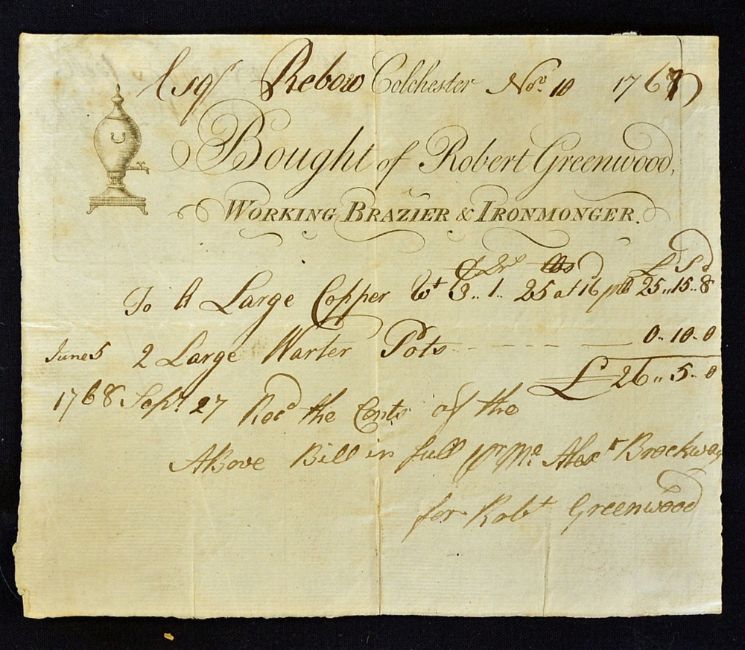 Esqr Rebow Colchester Novr 10 1767
Bought of Robert Greenwood,
WORKING BRAZIER & IRONMONGER.
C Qrs lbs d £ S d
To A Large Copper Wt 3 .. 1 .. 25 at 16 pr lb 25 .. 15 .. 8
2 Large Warter Pots 0 .. 10 .. 0
June 5
£ 26 .. 5 .. 0
1768 Sept 27 Recd the Conts of the
Above Bill in full pr Me Alexr Brockway
for Robt Greenwood